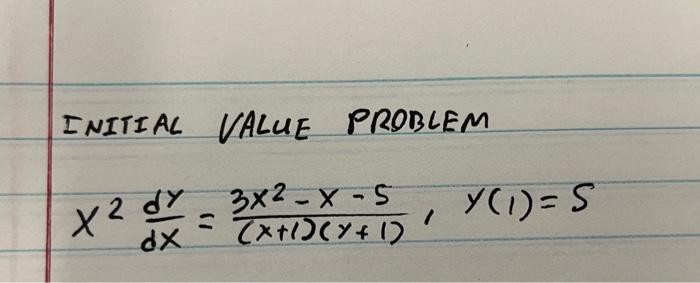 INITIAL VALUE PROBLEM
x² dy/dx = (3x² - x - 5)/((x+1)(y+1)), y(1) = 5